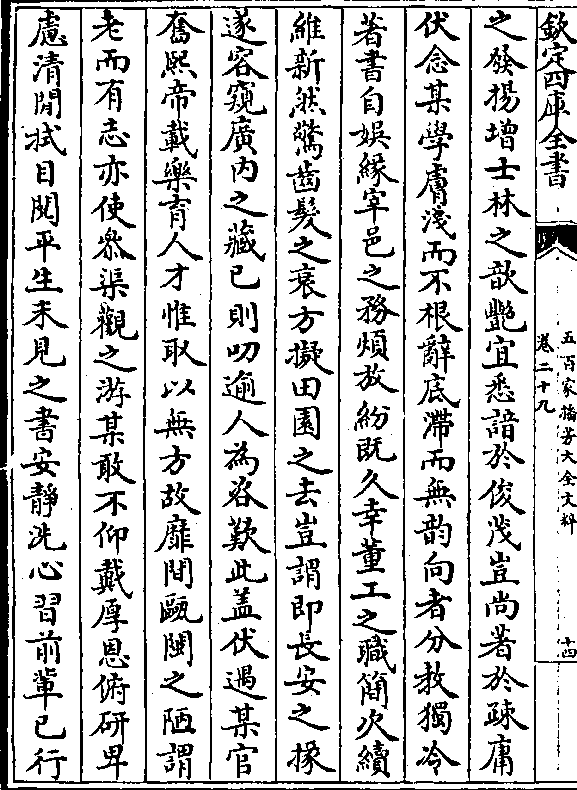 欽定四庫全書
五百家播芳大全文粹
卷二十九
十四
之發揚增士林之歆艷宜悉諳於俊茂豈尚著於疎庸
伏念某學膚淺而不根辭底滯而無韵向者分教獨冷
著書自娛緣宰邑之務煩放紛既久幸董工之職簡次續
維新然驚齒髮之衰方擬田園之去豈謂即長安之掾
遂容窺廣内之藏已則叨逾人為咨歎此蓋伏遇某官
奮熙帝載樂育人才惟取以無方故靡間甌閩之陋謂
老而有志亦使叅渠觀之游某敢不仰戴厚恩俯研卑
慮清閒拭目閲平生未見之書安靜洗心習前輩已行